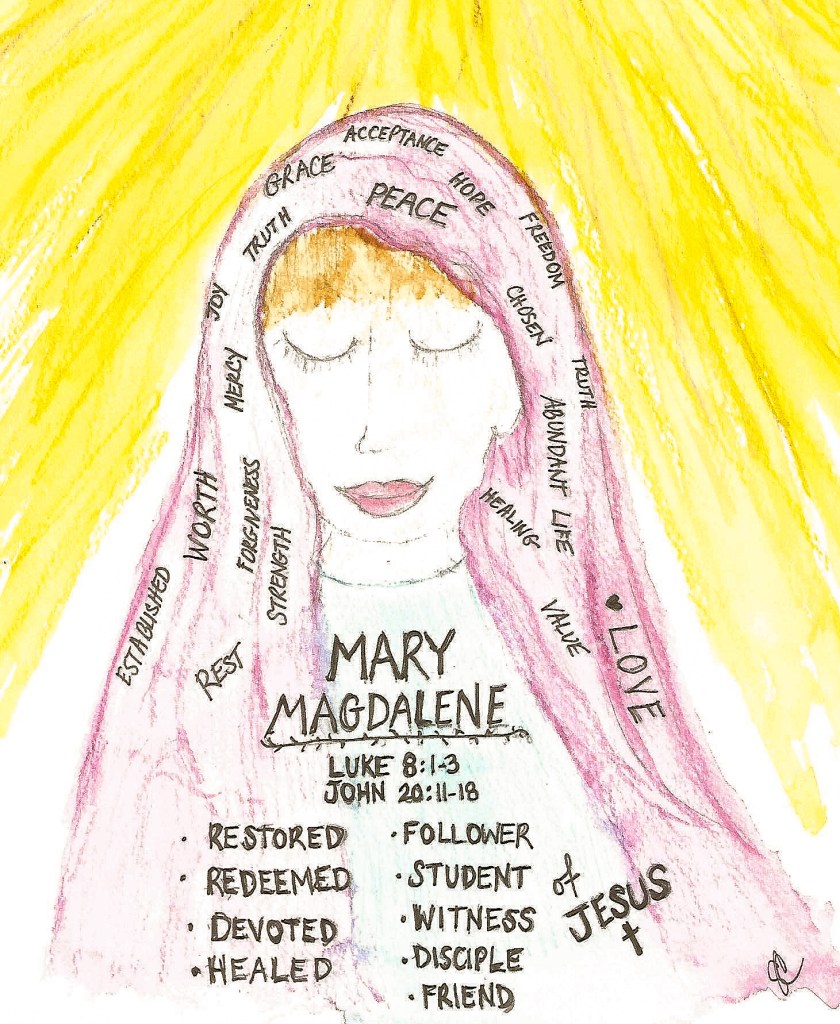 ACCEPTANCE
GRACE
PEACE
HOPE
TRUTH
FREEDOM
JOY
CHOSEN
MERCY
TRUTH
ABUNDANT LIFE
WORTH
FORGIVENESS
HEALING
STRENGTH
ESTABLISHED
VALUE
REST
♥ LOVE
MARY
MAGDALENE
LUKE 8:1-3
JOHN 20:11-18
· RESTORED
· REDEEMED
· DEVOTED
· HEALED
· FOLLOWER
· STUDENT
· WITNESS
· DISCIPLE
· FRIEND
of
JESUS